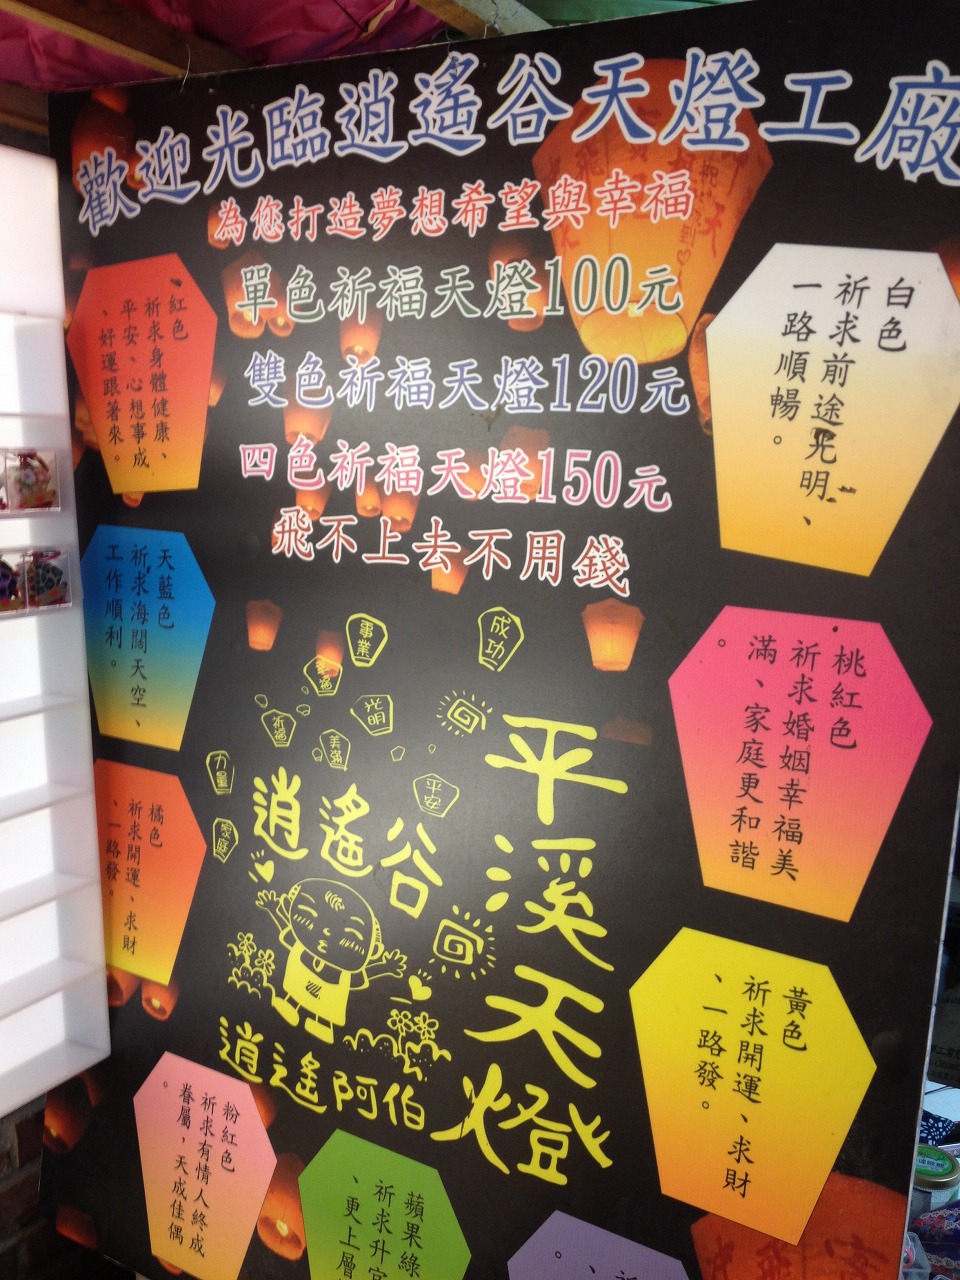 歡迎光臨逍遙谷天燈工廠
為您打造夢想希望與幸福
單色祈福天燈100元
雙色祈福天燈120元
四色祈福天燈150元
飛不上去不用錢
紅色
祈求身體健康、
平安、心想事成
、好運跟著來。
白色
祈求前途光明、
一路順暢。
天藍色
祈求海闊天空、
工作順利。
桃紅色
祈求婚姻幸福美
滿、家庭更和諧
。
橘色
祈求開運、求財
、一路發。
黃色
祈求開運、求財
、一路發。
粉紅色
祈求有情人終成
眷屬，天成佳偶
。
蘋果綠
祈求升官
、更上層
事業
成功
幸福
祈福
光明
美滿
力量
平安
家庭
逍遙谷
逍遙阿伯
平溪天燈